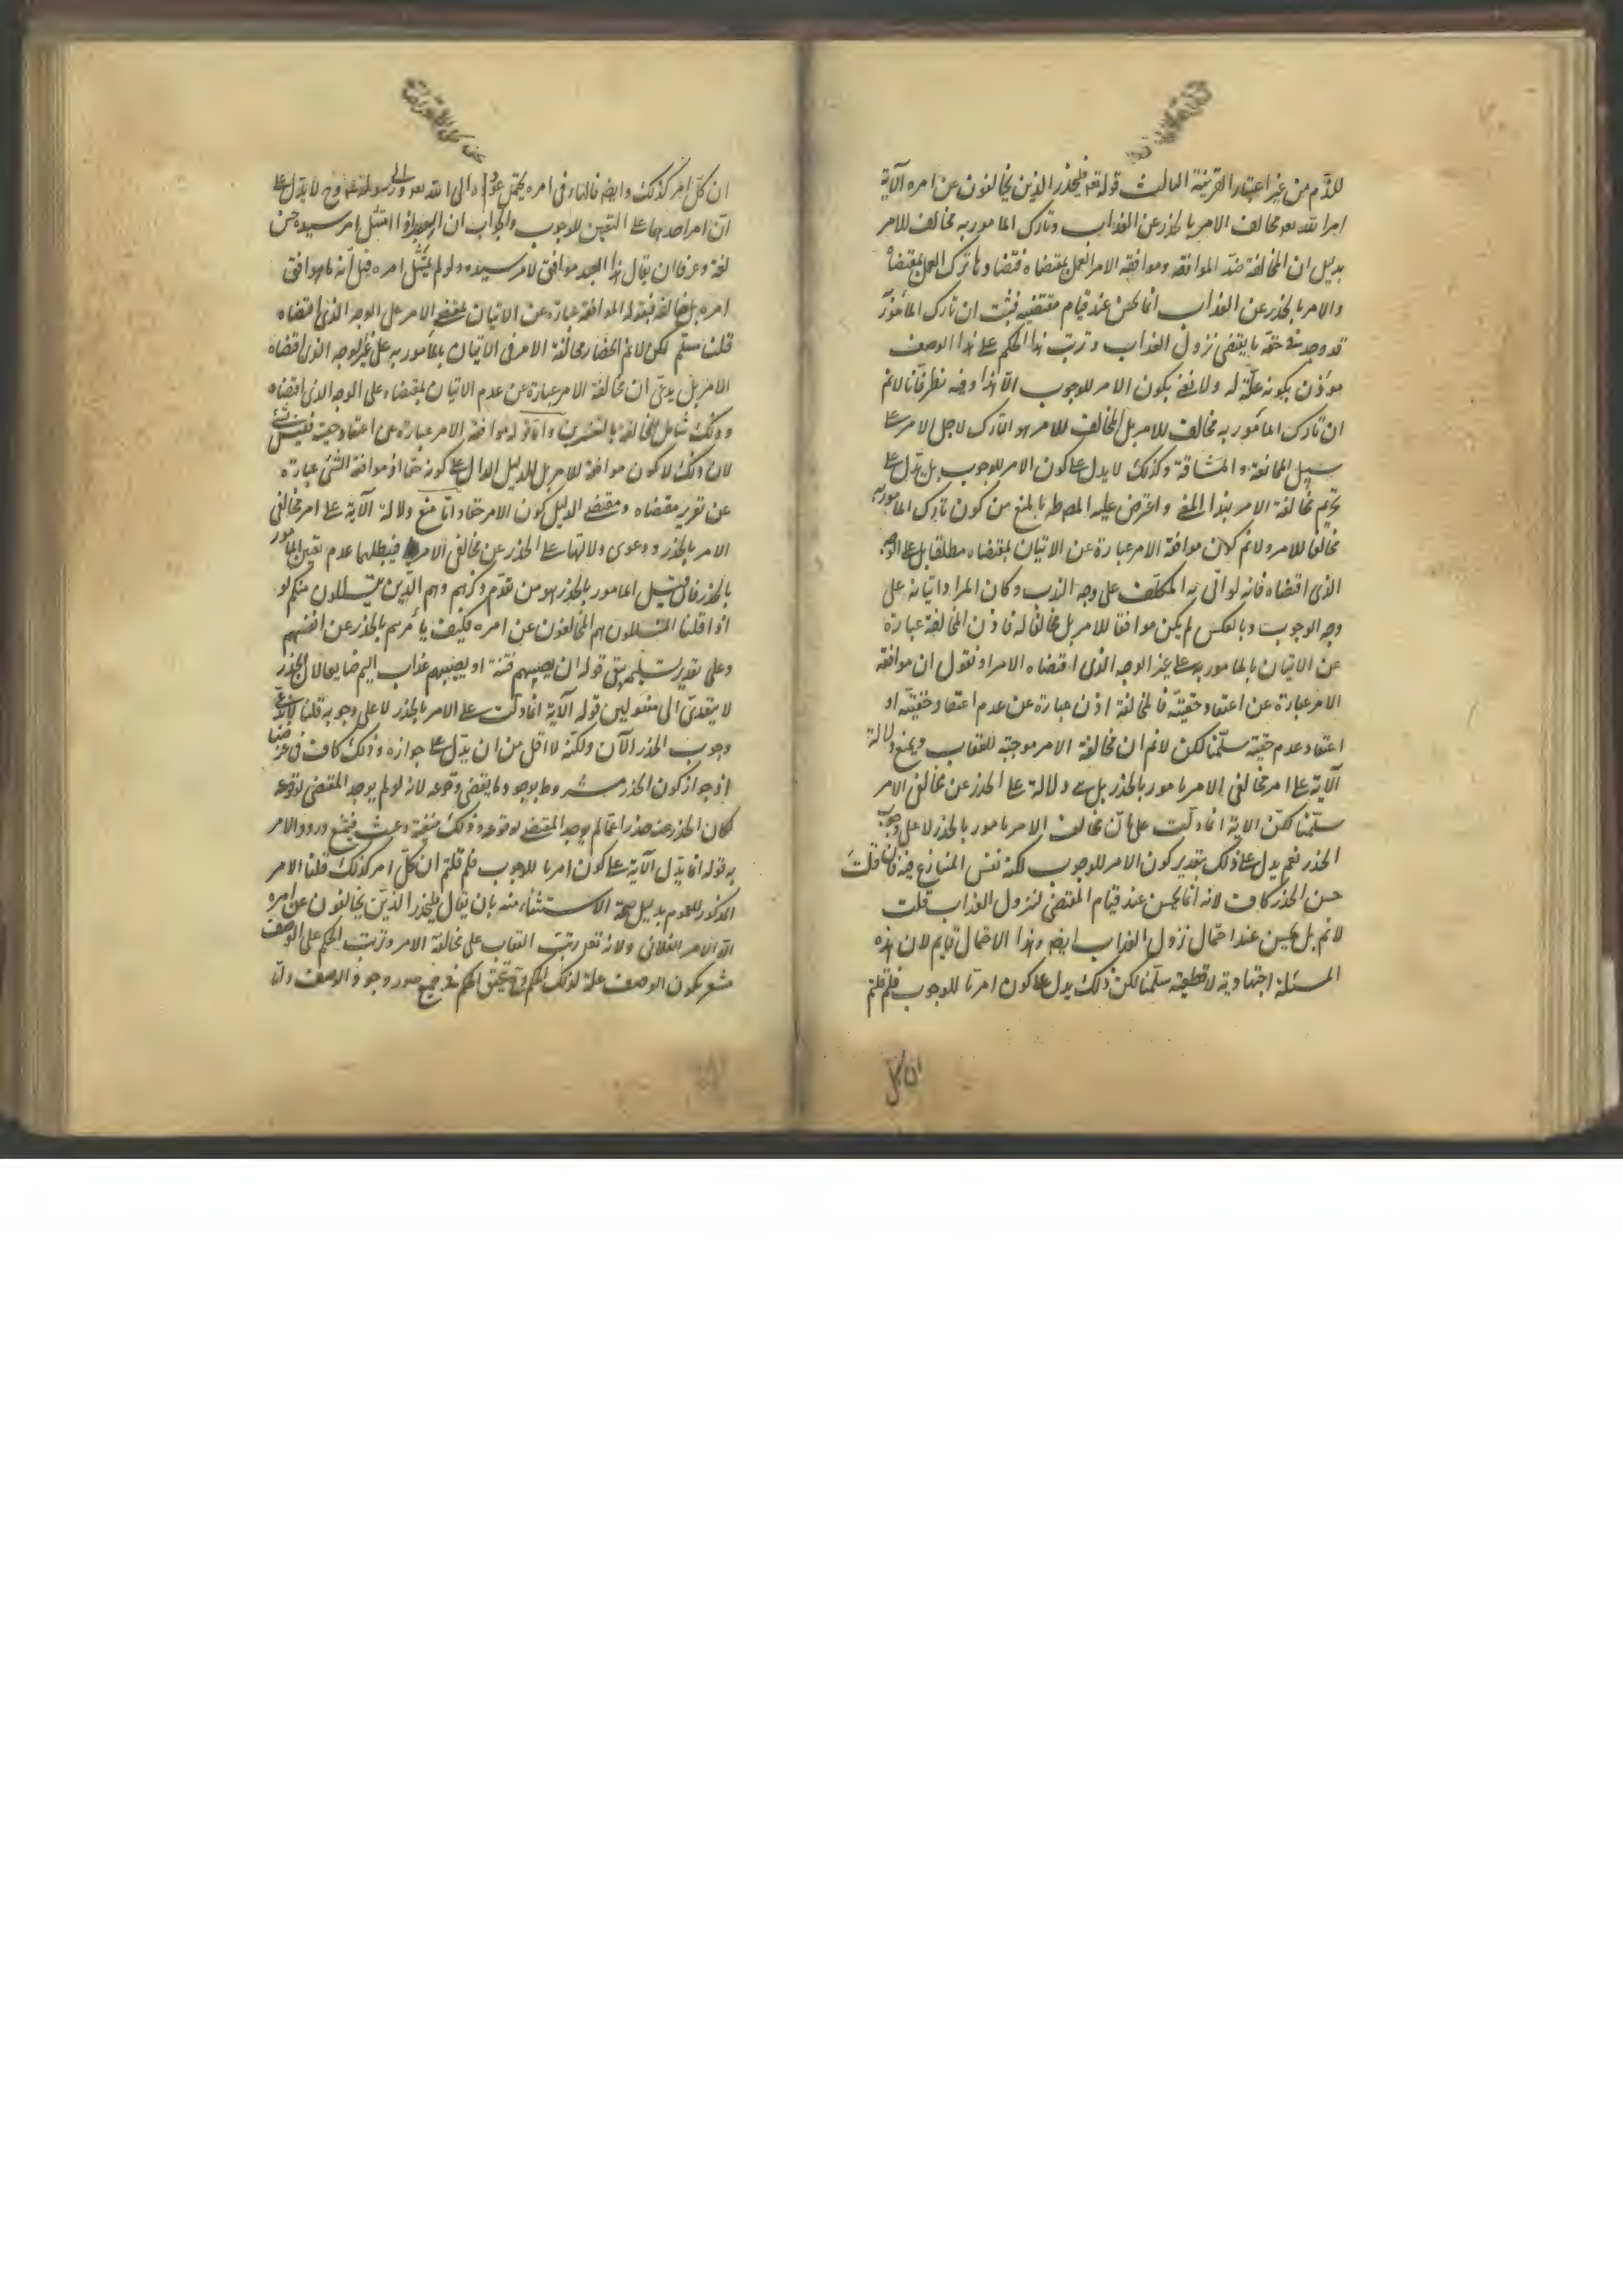 للذم من غير اعتبار القرينة الثالث قوله تعه فليحذر الذين يخالفون عن امره الآية
امر الله تعه مخالف الامر بالحذر عن العذاب وتارك المامور به مخالف للامر
بدليل ان المخالفة ضد الموافقة وموافقة الامر العمل بمقتضاه فتضادها ترك العمل بمقتضاه
والامر بالحذر عن العذاب انما يحسن عند قيام مقتضيه فثبت ان تارك المأمور
قد وجد في حقه ما يقتضى نزول العذاب وترتب هذا الحكم على هذا الوصف
مؤذن بكونه علّة له ولا نعنى بكون الامر للوجوب الّا هذا وفيه نظر فانا لانم
ان تارك المأمور به مخالف للامر بل المخالف للامر هو التارك لاجل الامر على
سبيل الممانعة والمشاقة وكذلك لا يدل على كون الامر للوجوب بل يدل على
تحريم مخالفة الامر بهذا المعنى واعترض عليه المص طه بالمنع من كون تارك المامور به
مخالفا للامر ولانم كون موافقة الامر عبارة عن الاتيان بمقتضاه مطلقا بل على الوجه
الذى اقتضاه فانه لو اتى به المكلّف على وجه الندب وكان المراد اتيانه على
وجه الوجوب وبالعكس لم يكن موافقا للامر بل مخالفا له فاذن المخالفة عبارة
عن الاتيان بالمامور به على غير الوجه الذى اقتضاه الامر او نقول ان موافقة
الامر عبارة عن اعتقاد حقيّته فالمخالفة اذن عبارة عن عدم اعتقاد حقيّته او
اعتقاد عدم حقيته سلّمنا لكن لانم ان مخالفة الامر موجبة للعقاب ويمنع دلالة
الآية على امر مخالفى الامر بالحذر بل هى دلالة على الحذر عن مخالفى الامر
سلّمنا لكن الاية انما دلّت على ان مخالف الامر مامور بالحذر لا على وجوب
الحذر نعم يدل على ذلك بتقدير كون الامر للوجوب لكنه نفس المتنازع فيه فان قلتَ
حسن الحذر كاف لانه انما يحسن عند قيام المقتضى لنزول العذاب قلت
لانم بل يحسن عند احتمال نزول العذاب ايضا وهذا الاحتمال قايم لان هذه
المسئلة اجتهادية لا قطعية سلّمنا لكن ذلك يدل على كون امر ما للوجوب فلم قلتم
ان كل
ان كلّ امر كذلك وايضا فالهاء فى امره يحتمل عوده الى الله تعه والى رسوله صلعم وح لا يدل على
انّ امر احدهما على التعيين للوجوب والجواب ان العبد اذا امتثل امر سيده حسن
لغة وعرفا ان يقال هذا العبد موافق لامر سيده ولو لم يمتثل امره قيل انه ما هو افق
امره بل خالفه فقوله الموافقة عبارة عن الاتيان بمقتضى الامر على الوجه الذى اقتضاه
قلنا مسلّم لكن لانم انحصار مخالفة الامر فى الاتيان بالمأمور به على غير الوجه الذى اقتضاه
الامر بل يدعى ان مخالفة الامر عبارة عن عدم الاتيان بمقتضاه على الوجه الذى اقتضاه
وذلك شامل للمخالفة بالتفسيرين واما قوله موافقة الامر عبارة عن اعتقاد حقيته فليس بشئ
لان ذلك لا يكون موافقة للامر بل للدليل الدال على كونه حقا اذ موافقة الشئ عبارة
عن تقرير مقتضاه ومقتضى الدليل كون الامر حقا واما منع دلالة الآية على امر مخالفى
الامر بالحذر ودعوى دلالتها على الحذر عن مخالفى الامر فيبطلها عدم تعين المأمور
بالحذر فان قيل المأمور بالحذر هو من تقدّم ذكرهم وهم الّذين يتسللون منكم لو
اذا قلنا المتسللون هم المخالفون عن امره فكيف يأمرهم بالحذر عن انفسهم
وعلى تقدير تسليمه يبقى قوله ان يصيبهم فتنة او يصيبهم عذاب اليم ضايعا لان الحذر
لا يتعدّى الى مفعولين قوله الآية انما دلّت على الامر بالحذر لا على وجوبه قلنا لا ندعى
وجوب الحذر الآن ولكنّه لا اقل من ان يدلّ على جوازه وذلك كاف فى غرضنا
اذ جواز كون الحذر مشروط بوجود ما يقتضى وقوعه لانه لو لم يوجد المقتضى لوقوعه
لكان الحذر عنه حذرا عما لم يوجد المقتضى لوقوعه وذلك سفه وعبث فيمتنع ورود الامر
به قوله انما يدلّ الآية على كون امر ما للوجوب فلم قلتم ان كلّ امر كذلك قلنا الامر
المذكور للعموم بدليل صحة الاستثناء منه بان يقال فليحذر الذين يخالفون عن امره
الا الامر الفلانى ولانه تعه رتب العقاب على مخالفة الامر وترتب الحكم على الوصف
مشعر بكون الوصف علة لذلك الحكم فيتحقق الحكم فى جميع صور وجود الوصف وانا